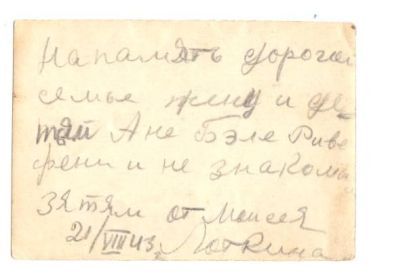 На память дорогой
семье жену и де
тей Ане Бэле Риве
фени и не знаком
зятям от Моисея
21/VIII 43. Лоткина